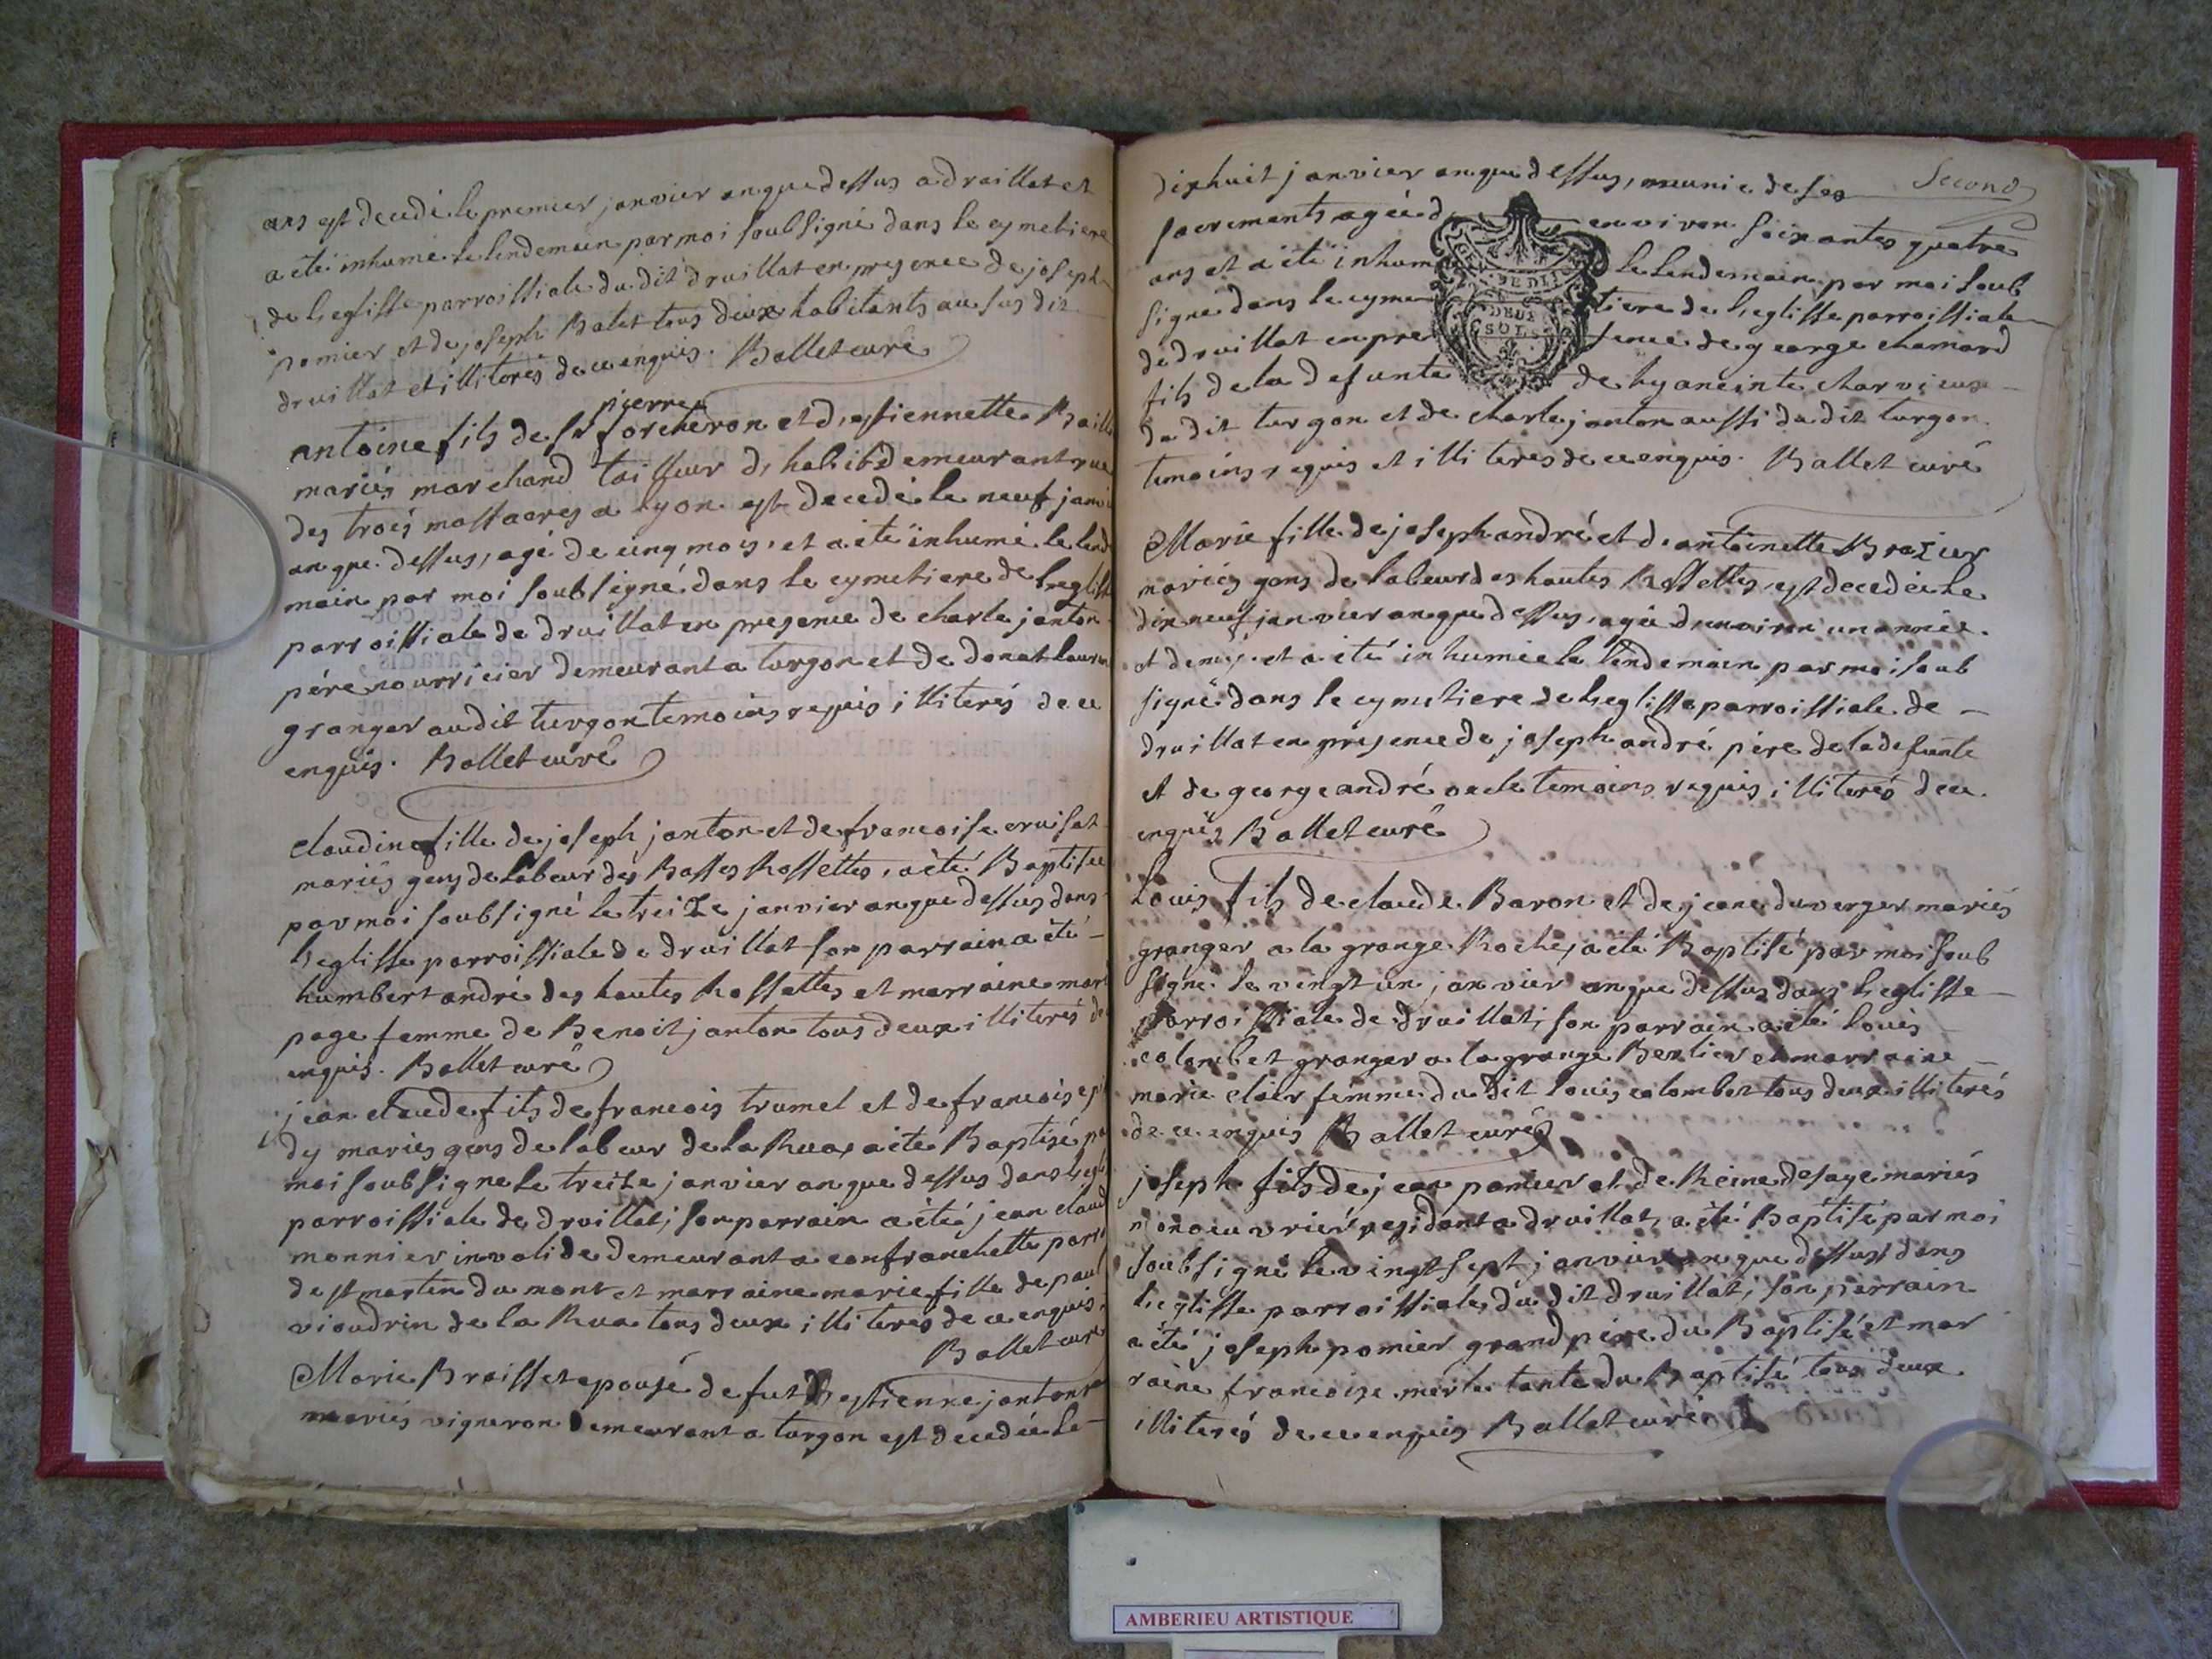 ans est decedé le premier janvier an que dessus a druillat et
a eté inhumé le lendemain par moi soubsigné dans le cymetiere
de l'eglisse parroissiale du dit druillat en presence de joseph
pomier et de joseph Balet tous deux habitants au sus dit
druillat et illiterés de ce enquis. Ballet curé
pierre
antoine fils de sr forcheron et d'estiennette Baill
mariés marchand tailleur d'habits demeurant rue
des trois massacres a lyon est decedé le neuf janvi
an que dessus, agé de cinq mois, et a eté inhumé le lend
main par moi soubsigné dans le cymetiere de l'egliss
parroissiale de druillat en presence de charle janton
pére nourricier demeurant a turgon et de donat lauren
granger au dit turgon temoins requis illiterés de ce
enquis. Ballet curé
Claudine fille de joseph janton et de francoise cruisat
mariés gens de labeur des Basses Rossettes, a eté Baptisée
par moi soubsigné le treize janvier an que dessus dans
l'eglisse parroissiale de druillat son parrain a eté
humbert andré des hautes Rossettes et marraine mari
page femme de Benoit janton tous deux illiterés de
enquis. Ballet curé
jean claude fils de francois trumel et de francoise
dy mariés gens de labeur de la Rua, a eté Baptisé pa
moi soubsigné le treize janvier an que dessus dans l'egl
parroissiale de druillat; son parrain a eté jean claud
monnier invalide demeurant a confranchette parr
de st martin du mont et marraine marie fille de paul
vioudrin de la Rua tous deux illiterés de ce enquis.
Ballet curé
Marie Braisset epouse de fut estienne janton
mariés vigneron demeurant a turgon est decedée le
dixhuit janvier an que dessus, munie de ses Second
sacrements agée d environ soixantes quatre
ans et a eté inhum le lendemain par moi soub
signé dans le cyme tiere de l'eglisse parroissiale
de druillat en pre sence de george chamard
DEUX
SOLS
fils de la defunte de hyacinte charvieux
du dit turgon et de charle janton aussi du dit turgon
temoins requis et illiterés de ce enquis. Ballet curé
Marie fille de joseph andré et d'antoinette Brazier
mariés gens de labeur des hautes Rossettes, est decedée le
dix neuf janvier an que dessus, agée d'environ un année
et demy, et a eté inhumée le lendemain par moi soub
signé dans le cymetiere de l'eglisse parroissiale de
druillat en présence de joseph andré pére de la defunte
et de george andré oncle temoins requis, illiterés de ce
enquis Ballet curé
Louis fils de claude Baron et de jeane duverger mariés
granger a la grange Roche, a eté Baptisé par moi soub
signé le vingt un janvier an que dessus dans l'eglisse
parroissiale de druillat, son parrain a eté louis
colombet granger a la grange Berlier et marraine
marie clair femme du dit louis colombet tous deux illiterés
de ce enquis Ballet curé
joseph fils de jean pomier et de Reine desage mariés
manoeuvrier residant a druillat, a eté Baptisé par moi
soubsigné le vingt sept janvier an que dessus dans
l'eglisse parroissiale du dit druillat, son parrain
a eté joseph pomier grand pére du Baptisé et mar
raine francoise merle tante du Baptisé tous deux
illiterés de ce enquis Ballet curé
AMBERIEU ARTISTIQUE